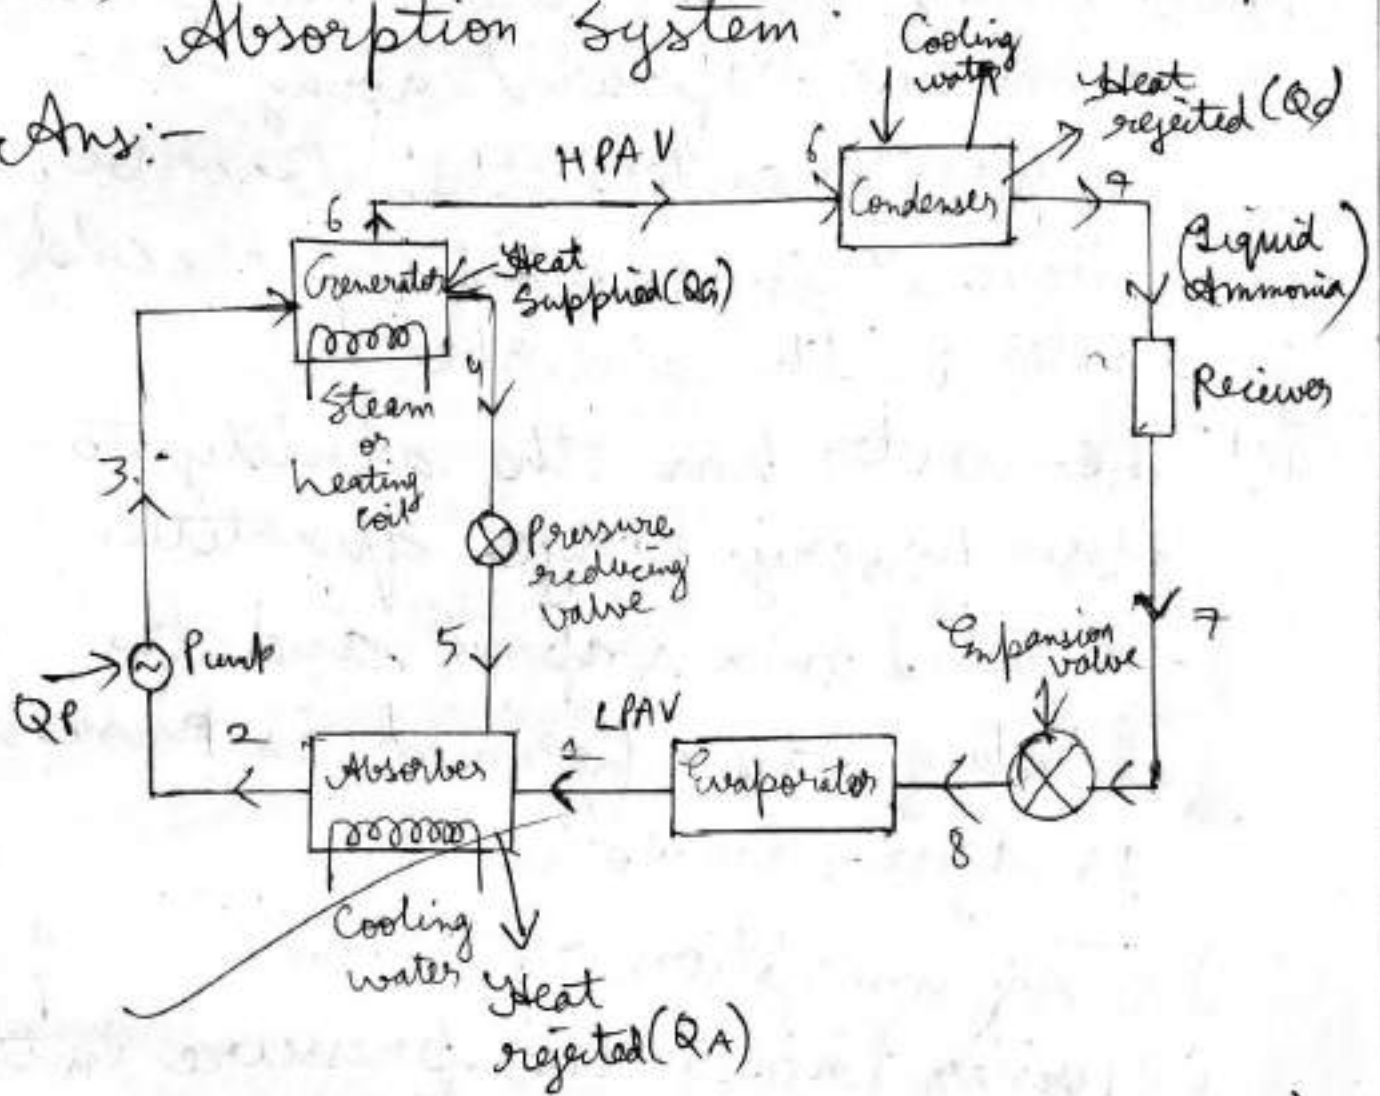 Absorption System
Ans:-
Cooling
water
Heat
rejected (Qc)
HPAV
6
Condenser
7
6
Generator
Heat
Supplied (QG)
(Liquid
Ammonia)
Steam
or
heating
coil
4
Reciever
3
Pressure
reducing
valve
5
Pump
QP
Expansion
valve
7
2
Absorber
1
LPAV
Evaporator
8
Cooling
water
Heat
rejected (QA)